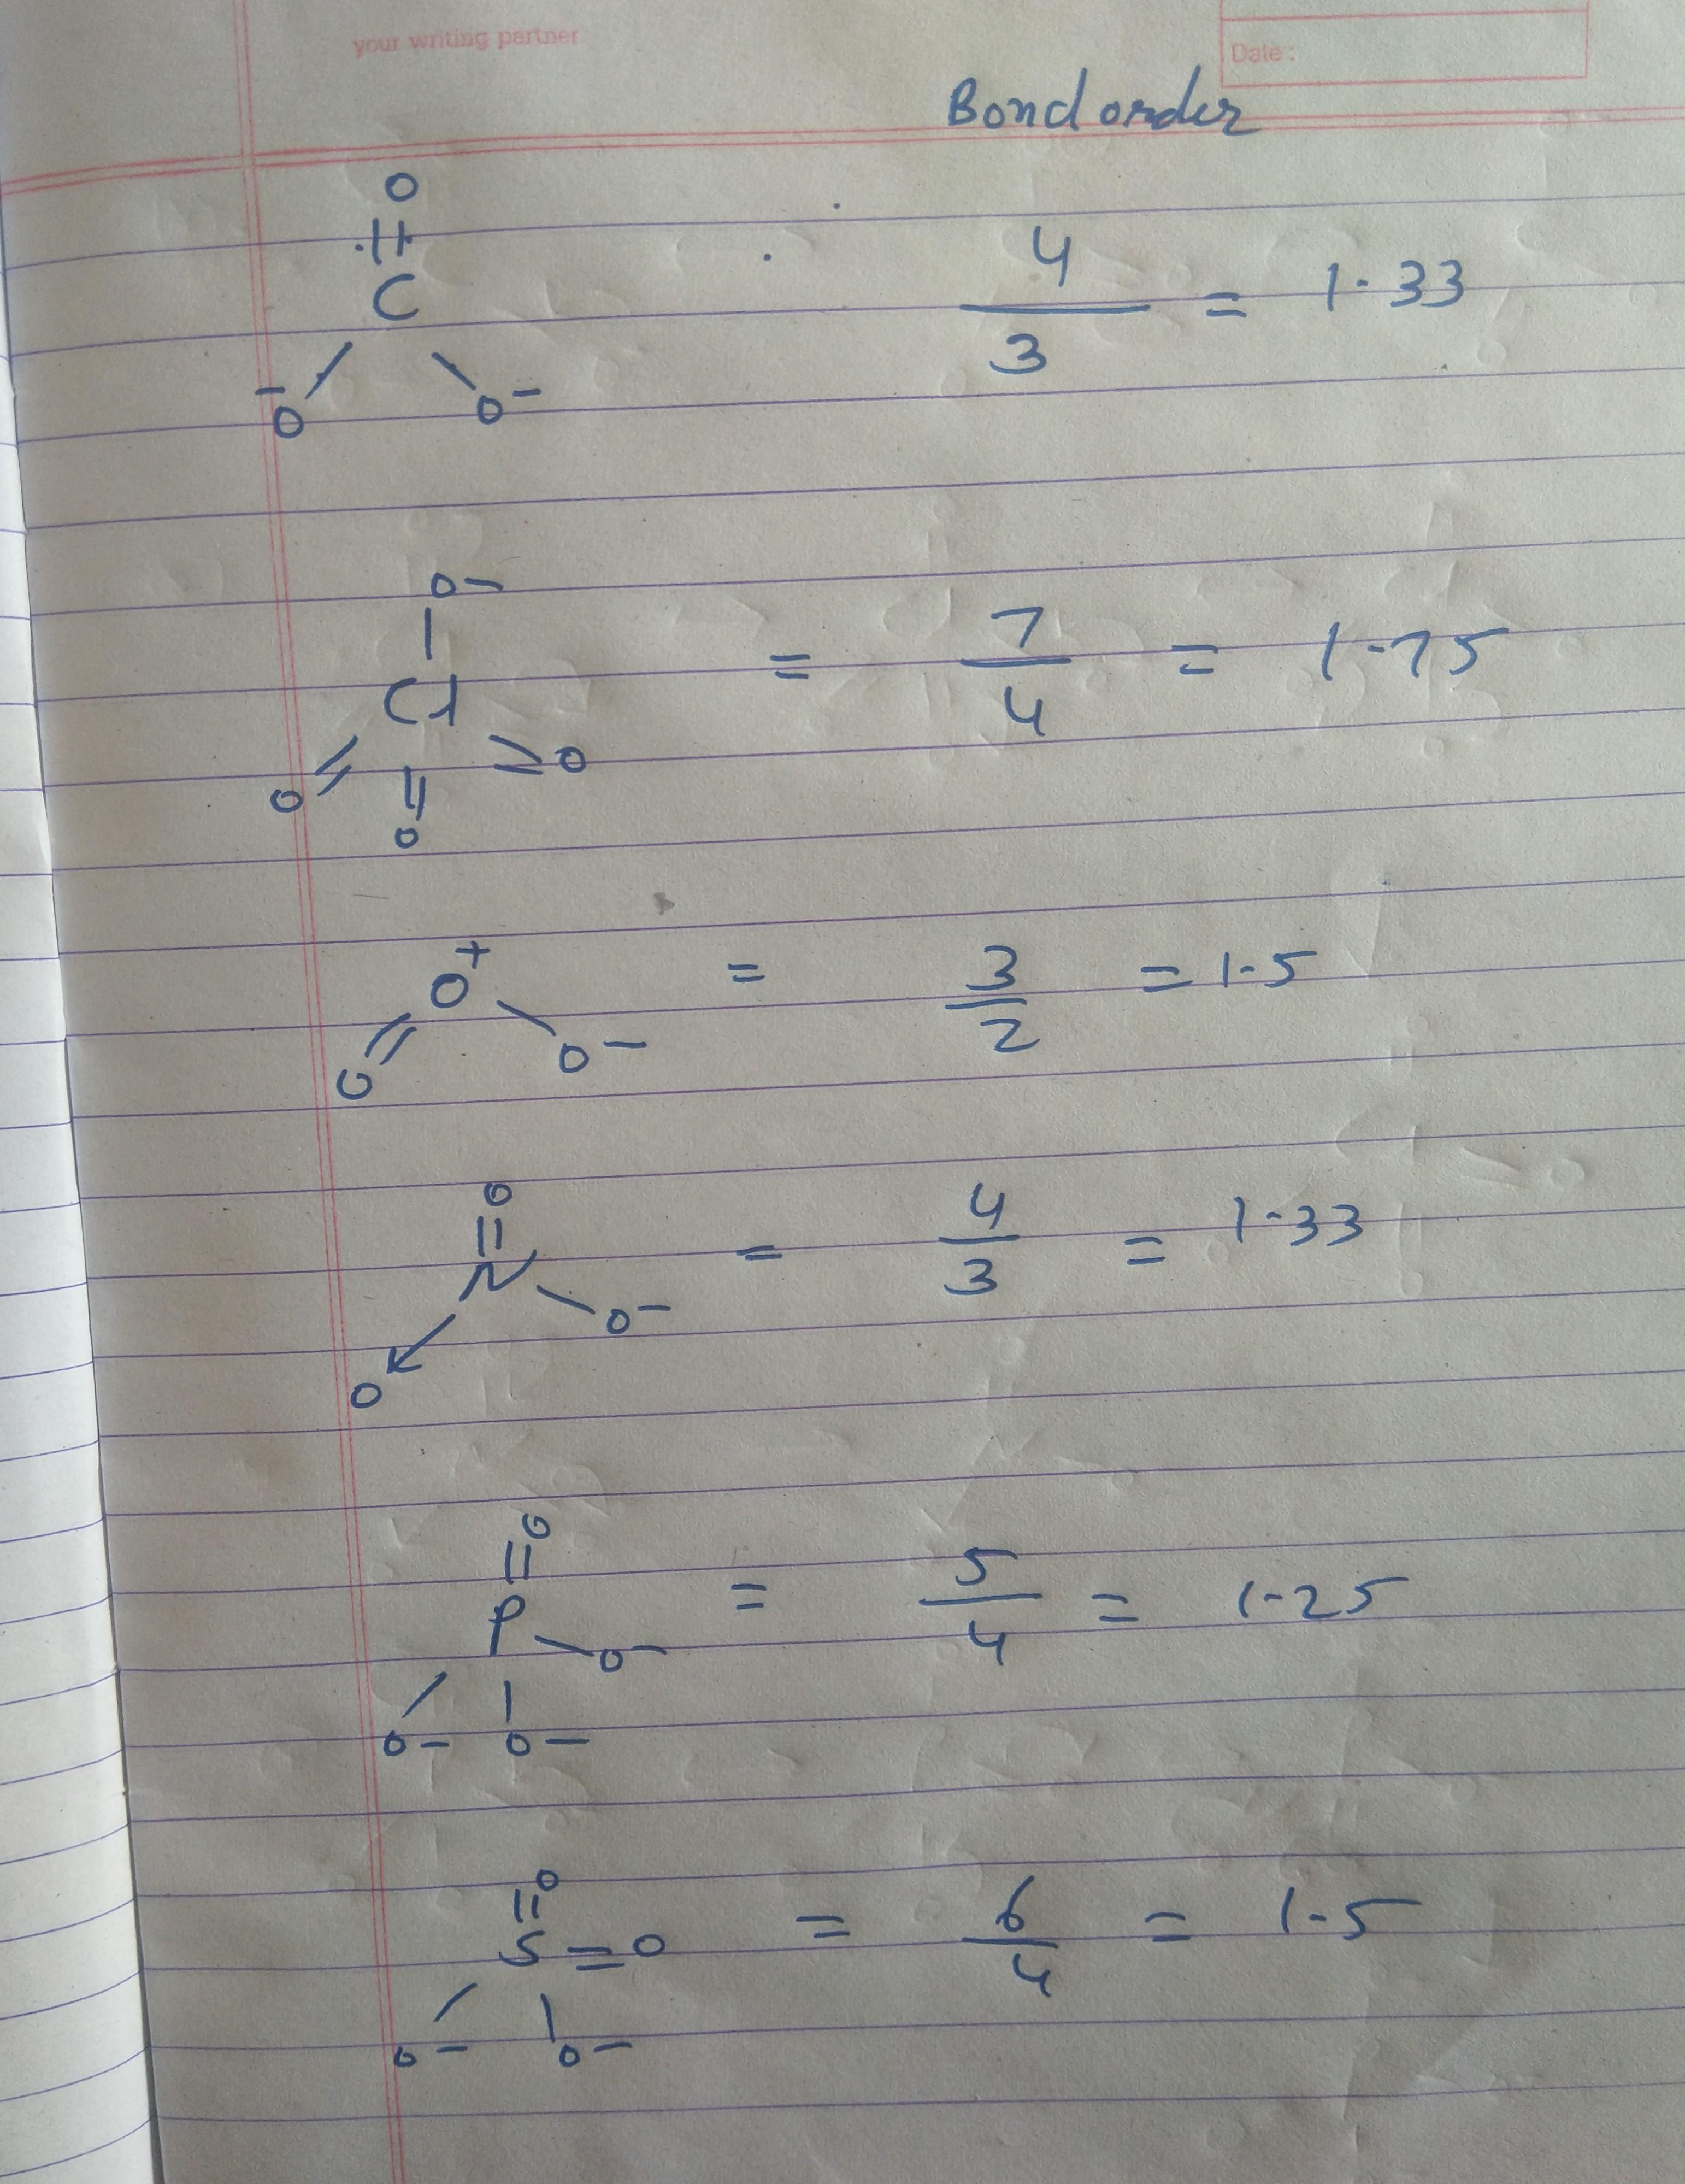 your writing partner
Date :
Bond order
O
||
C
-O / \ O-
4/3 = 1.33
O-
|
Cl
O // || \\ O
O
= 7/4 = 1.75
O+
O // \ O-
= 3/2 = 1.5
O
||
N
O ↙ \ O-
= 4/3 = 1.33
O
||
P \ O-
/ |
O- O-
= 5/4 = 1.25
O
||
S = O
/ |
O- O-
= 6/4 = 1.5